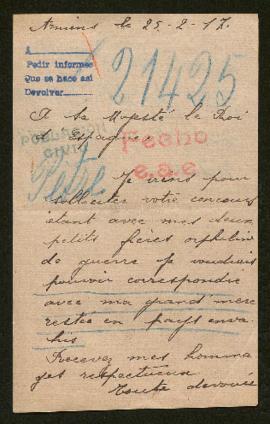 Amiens le 25-2-17.
A
Pedir informes
Que se hace asi
Devolver
21425
A Sa Majesté le Roi
Espagne
Fecho
e.a.e
CIVIL
Je viens pour
solliciter votre concours
étant avec mes deux
petits frères orphelins
de guerre je voudrais
pouvoir correspondre
avec ma grand'mère
restée en pays enva
his
Recevez mes homma
ges respectueux
Toute dévouée